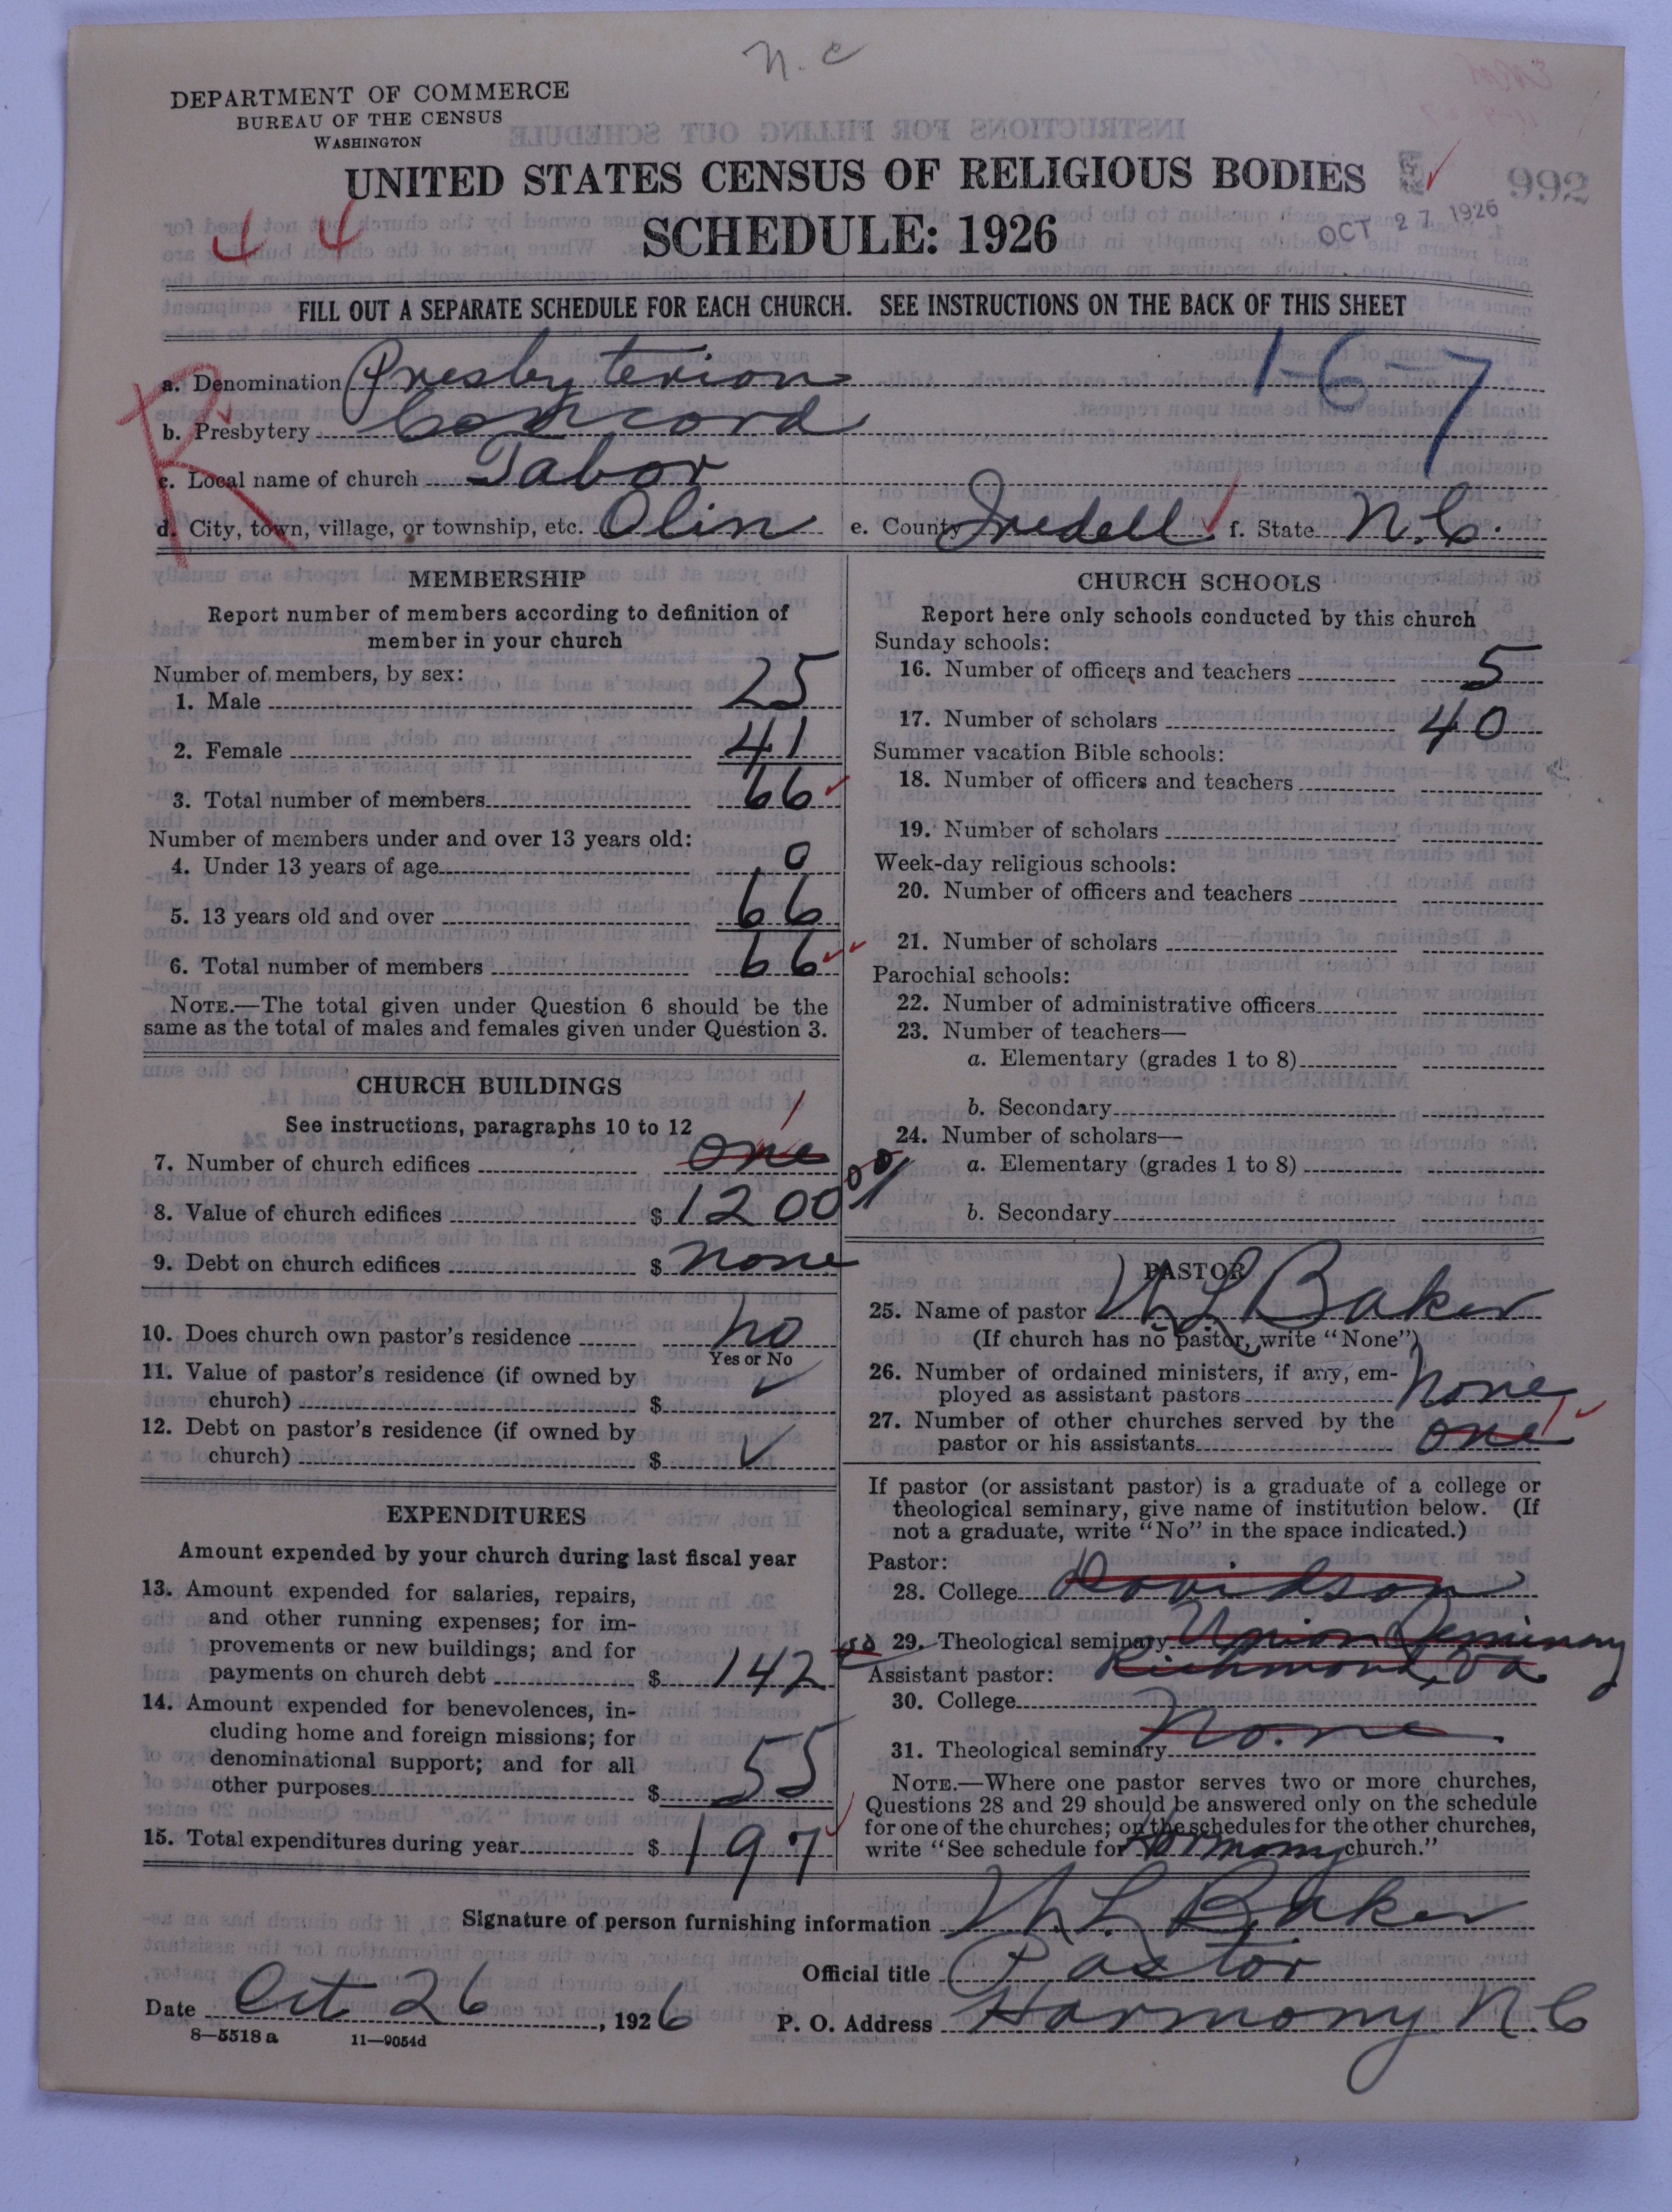 N. C
DEPARTMENT OF COMMERCE
BUREAU OF THE CENSUS
WASHINGTON
UNITED STATES CENSUS OF RELIGIOUS BODIES
992
SCHEDULE: 1926
OCT 27 1926
4 4
FILL OUT A SEPARATE SCHEDULE FOR EACH CHURCH. SEE INSTRUCTIONS ON THE BACK OF THIS SHEET
1-6-7
R
a. Denomination Presbyterian
b. Presbytery Concord
c. Local name of church Tabor
d. City, town, village, or township, etc. Olin e. County Iredell f. State N.C.
MEMBERSHIP
Report number of members according to definition of
member in your church
Number of members, by sex:
1. Male 25
2. Female 41
3. Total number of members 66
Number of members under and over 13 years old:
4. Under 13 years of age 0
5. 13 years old and over 66
6. Total number of members 66
NOTE.—The total given under Question 6 should be the
same as the total of males and females given under Question 3.
CHURCH BUILDINGS
See instructions, paragraphs 10 to 12
7. Number of church edifices one 1
8. Value of church edifices $ 1200 00
9. Debt on church edifices $ none
10. Does church own pastor's residence no
Yes or No
11. Value of pastor's residence (if owned by
church) $ ✓
12. Debt on pastor's residence (if owned by
church) $ ✓
EXPENDITURES
Amount expended by your church during last fiscal year
13. Amount expended for salaries, repairs,
and other running expenses; for im-
provements or new buildings; and for
payments on church debt $ 142
14. Amount expended for benevolences, in-
cluding home and foreign missions; for
denominational support; and for all
other purposes $ 55
15. Total expenditures during year $ 197
CHURCH SCHOOLS
Report here only schools conducted by this church
Sunday schools:
16. Number of officers and teachers 5
17. Number of scholars 40
Summer vacation Bible schools:
18. Number of officers and teachers
19. Number of scholars
Week-day religious schools:
20. Number of officers and teachers
21. Number of scholars
Parochial schools:
22. Number of administrative officers
23. Number of teachers—
a. Elementary (grades 1 to 8)
b. Secondary
24. Number of scholars—
a. Elementary (grades 1 to 8)
b. Secondary
PASTOR
25. Name of pastor L Baker
(If church has no pastor, write "None")
26. Number of ordained ministers, if any, em-
ployed as assistant pastors none
27. Number of other churches served by the
pastor or his assistants one 1
If pastor (or assistant pastor) is a graduate of a college or
theological seminary, give name of institution below. (If
not a graduate, write "No" in the space indicated.)
Pastor:
28. College Davidson
29. Theological seminary Union Seminary
Richmond, Va
Assistant pastor:
30. College
None
31. Theological seminary
NOTE.—Where one pastor serves two or more churches,
Questions 28 and 29 should be answered only on the schedule
for one of the churches; on the schedules for the other churches,
write "See schedule for Harmony church."
Signature of person furnishing information L Baker
Official title Pastor
Date Oct 26, 1926
P. O. Address Harmony N.C
8—5518a 11—9054d